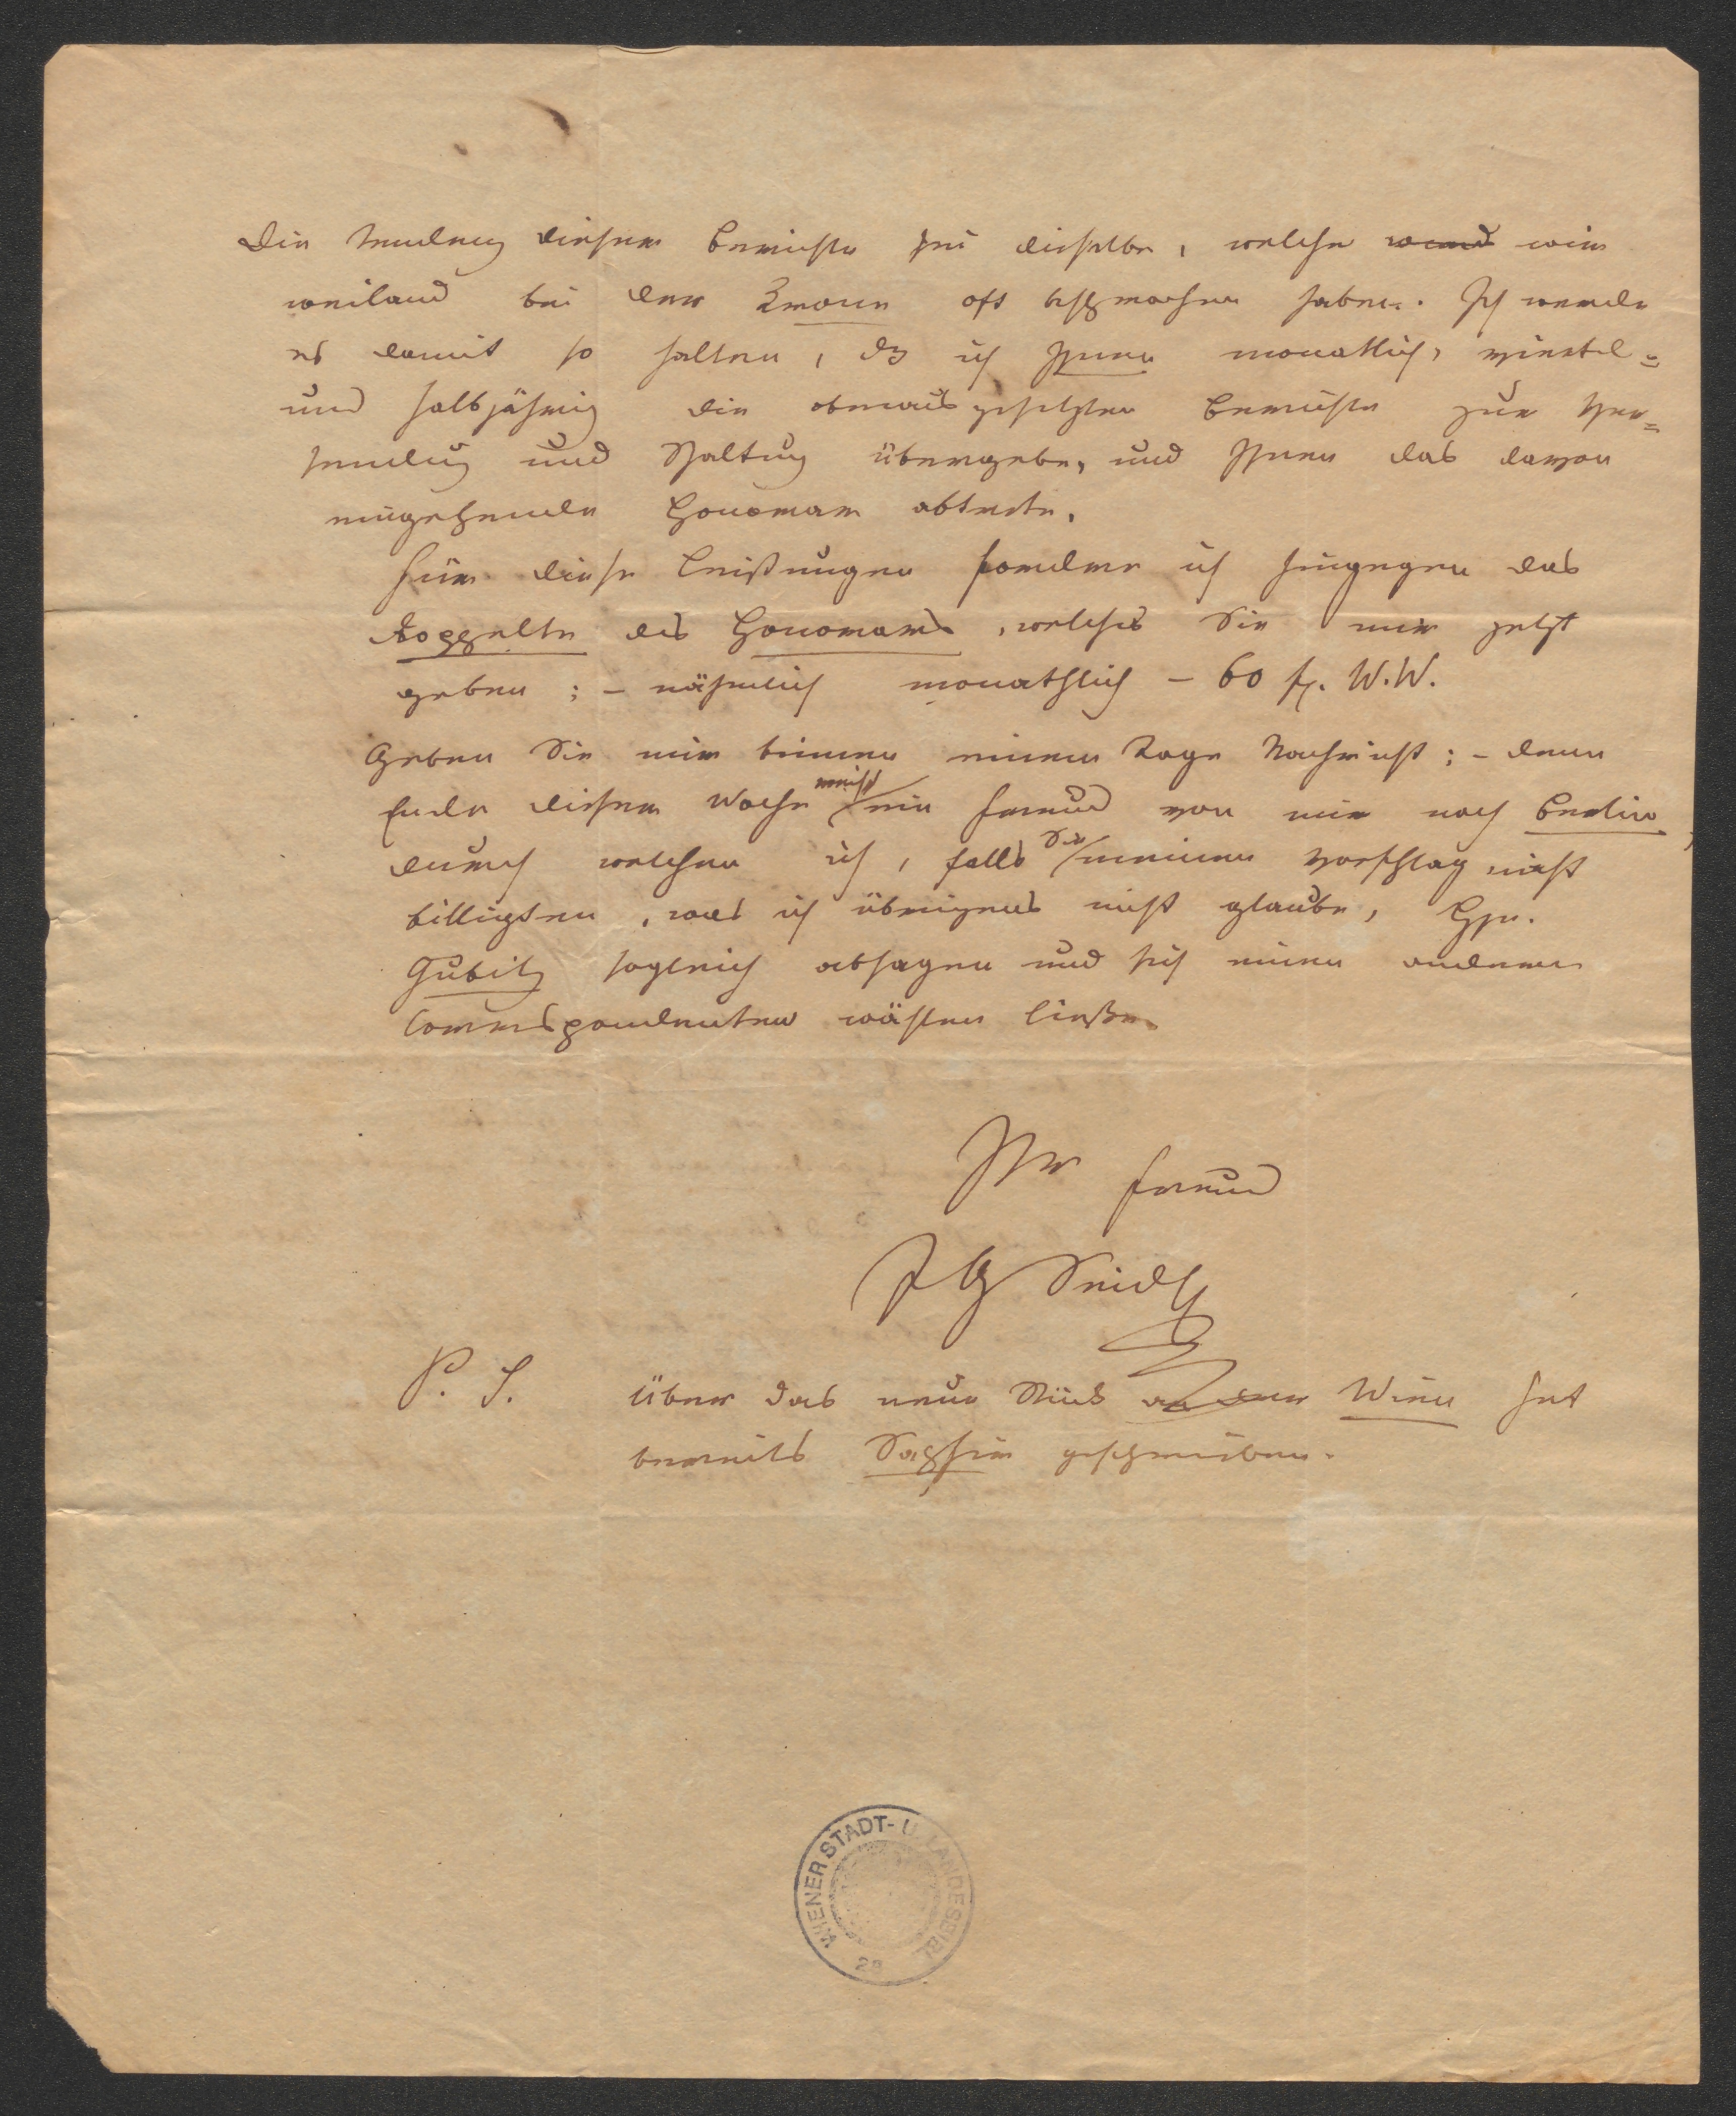 Die Tendenz dieser Berichte sei dieselbe, welche wir
weiland bei der Krone oft besprochen haben. Ich werde
es damit so halten, dß ich Ihnen monatlich, viertel-
und halbjährig die obenausgesetzten Berichte zur Ver-
sendung und Schaltung übergebe, und Ihnen das davon
eingehende Honorar abtrete.
Für diese Leistungen fordere ich hingegen das
doppelte des Honorars, welches Sie mir jetzt
geben; – nähmlich monathlich – 60 fl. W.W.
Geben Sie mir binnen einem Tage Nachricht; – denn
Ende dieser Woche reist ein Freund von mir nach Berlin,
durch welchen ich, falls Sie meinen Vorschlag nicht
billigten, was ich übrigens nicht glaube, Hrn.
Gubitz sogleich absagen und sich einen anderen
Correspondenten wählen ließe.
Ihr Freund
J G Seidl
P. S. Über das neue Stück an der Wien hat
bereits Saphir geschrieben.
WIENER STADT- U. LANDESBIBL.